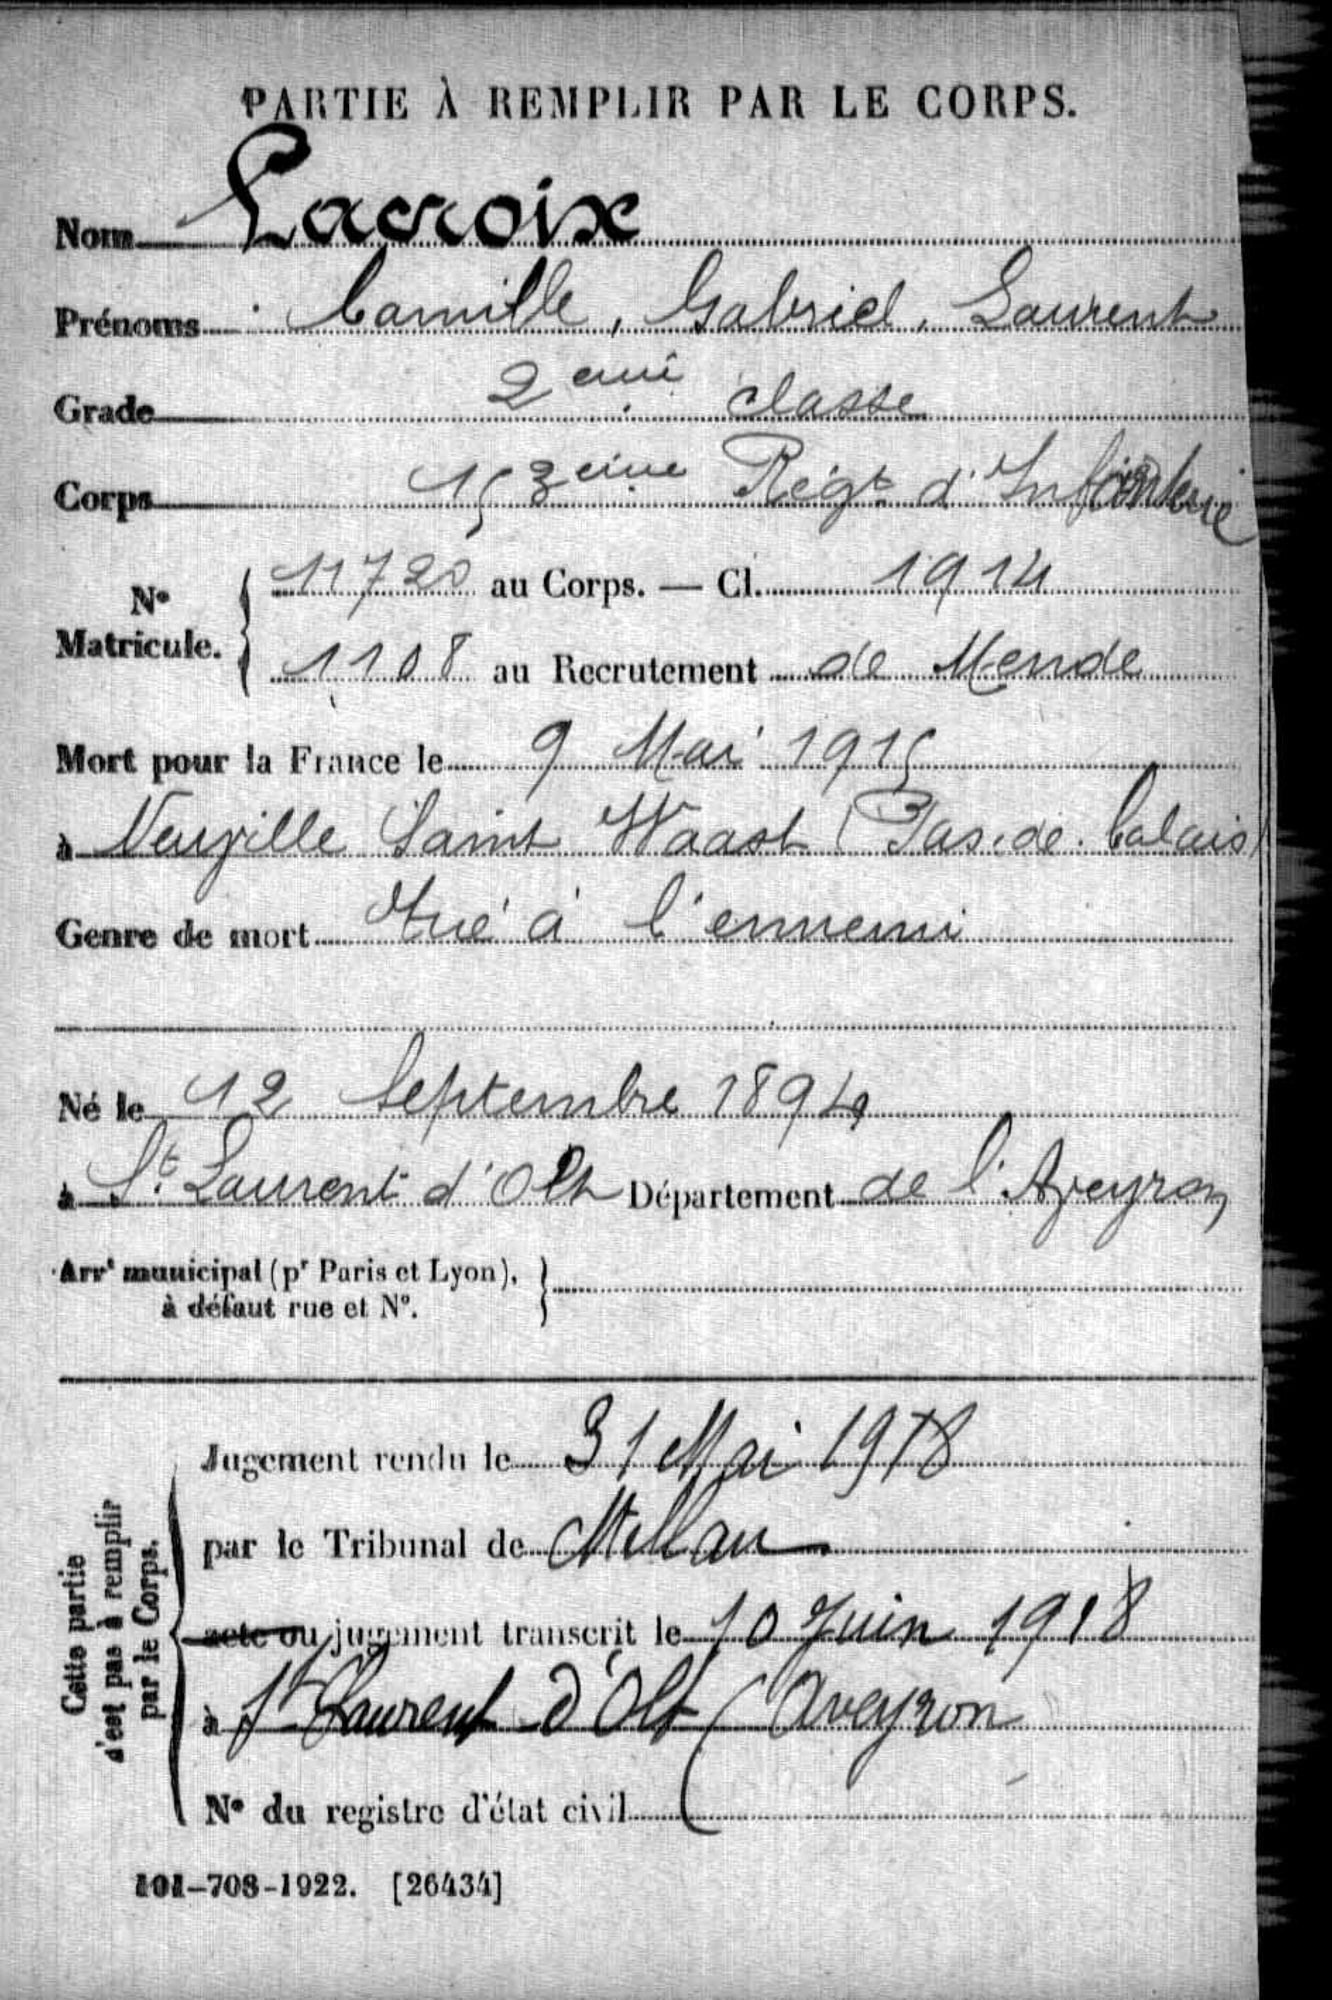 PARTIE À REMPLIR PAR LE CORPS.
Nom Lacroix
Prénoms Camille, Gabriel, Laurent
Grade 2eme classe
Corps 153eme Régt d'Infanterie
No Matricule. 11720 au Corps. — Cl. 1914
1108 au Recrutement de Mende
Mort pour la France le 9 Mai 1915
à Neuville Saint Waast (Pas-de-Calais)
Genre de mort Tué à l'ennemi
Né le 12 Septembre 1894
à St. Laurent d'Olt Département de l'Aveyron
Arrt municipal (pr Paris et Lyon),
à défaut rue et No.
Cette partie
n'est pas à remplir
par le Corps.
Jugement rendu le 31 Mai 1918
par le Tribunal de Millau
acte ou jugement transcrit le 10 Juin 1918
à St Laurent d'Olt (Aveyron
No du registre d'état civil
101-708-1922. [26434]